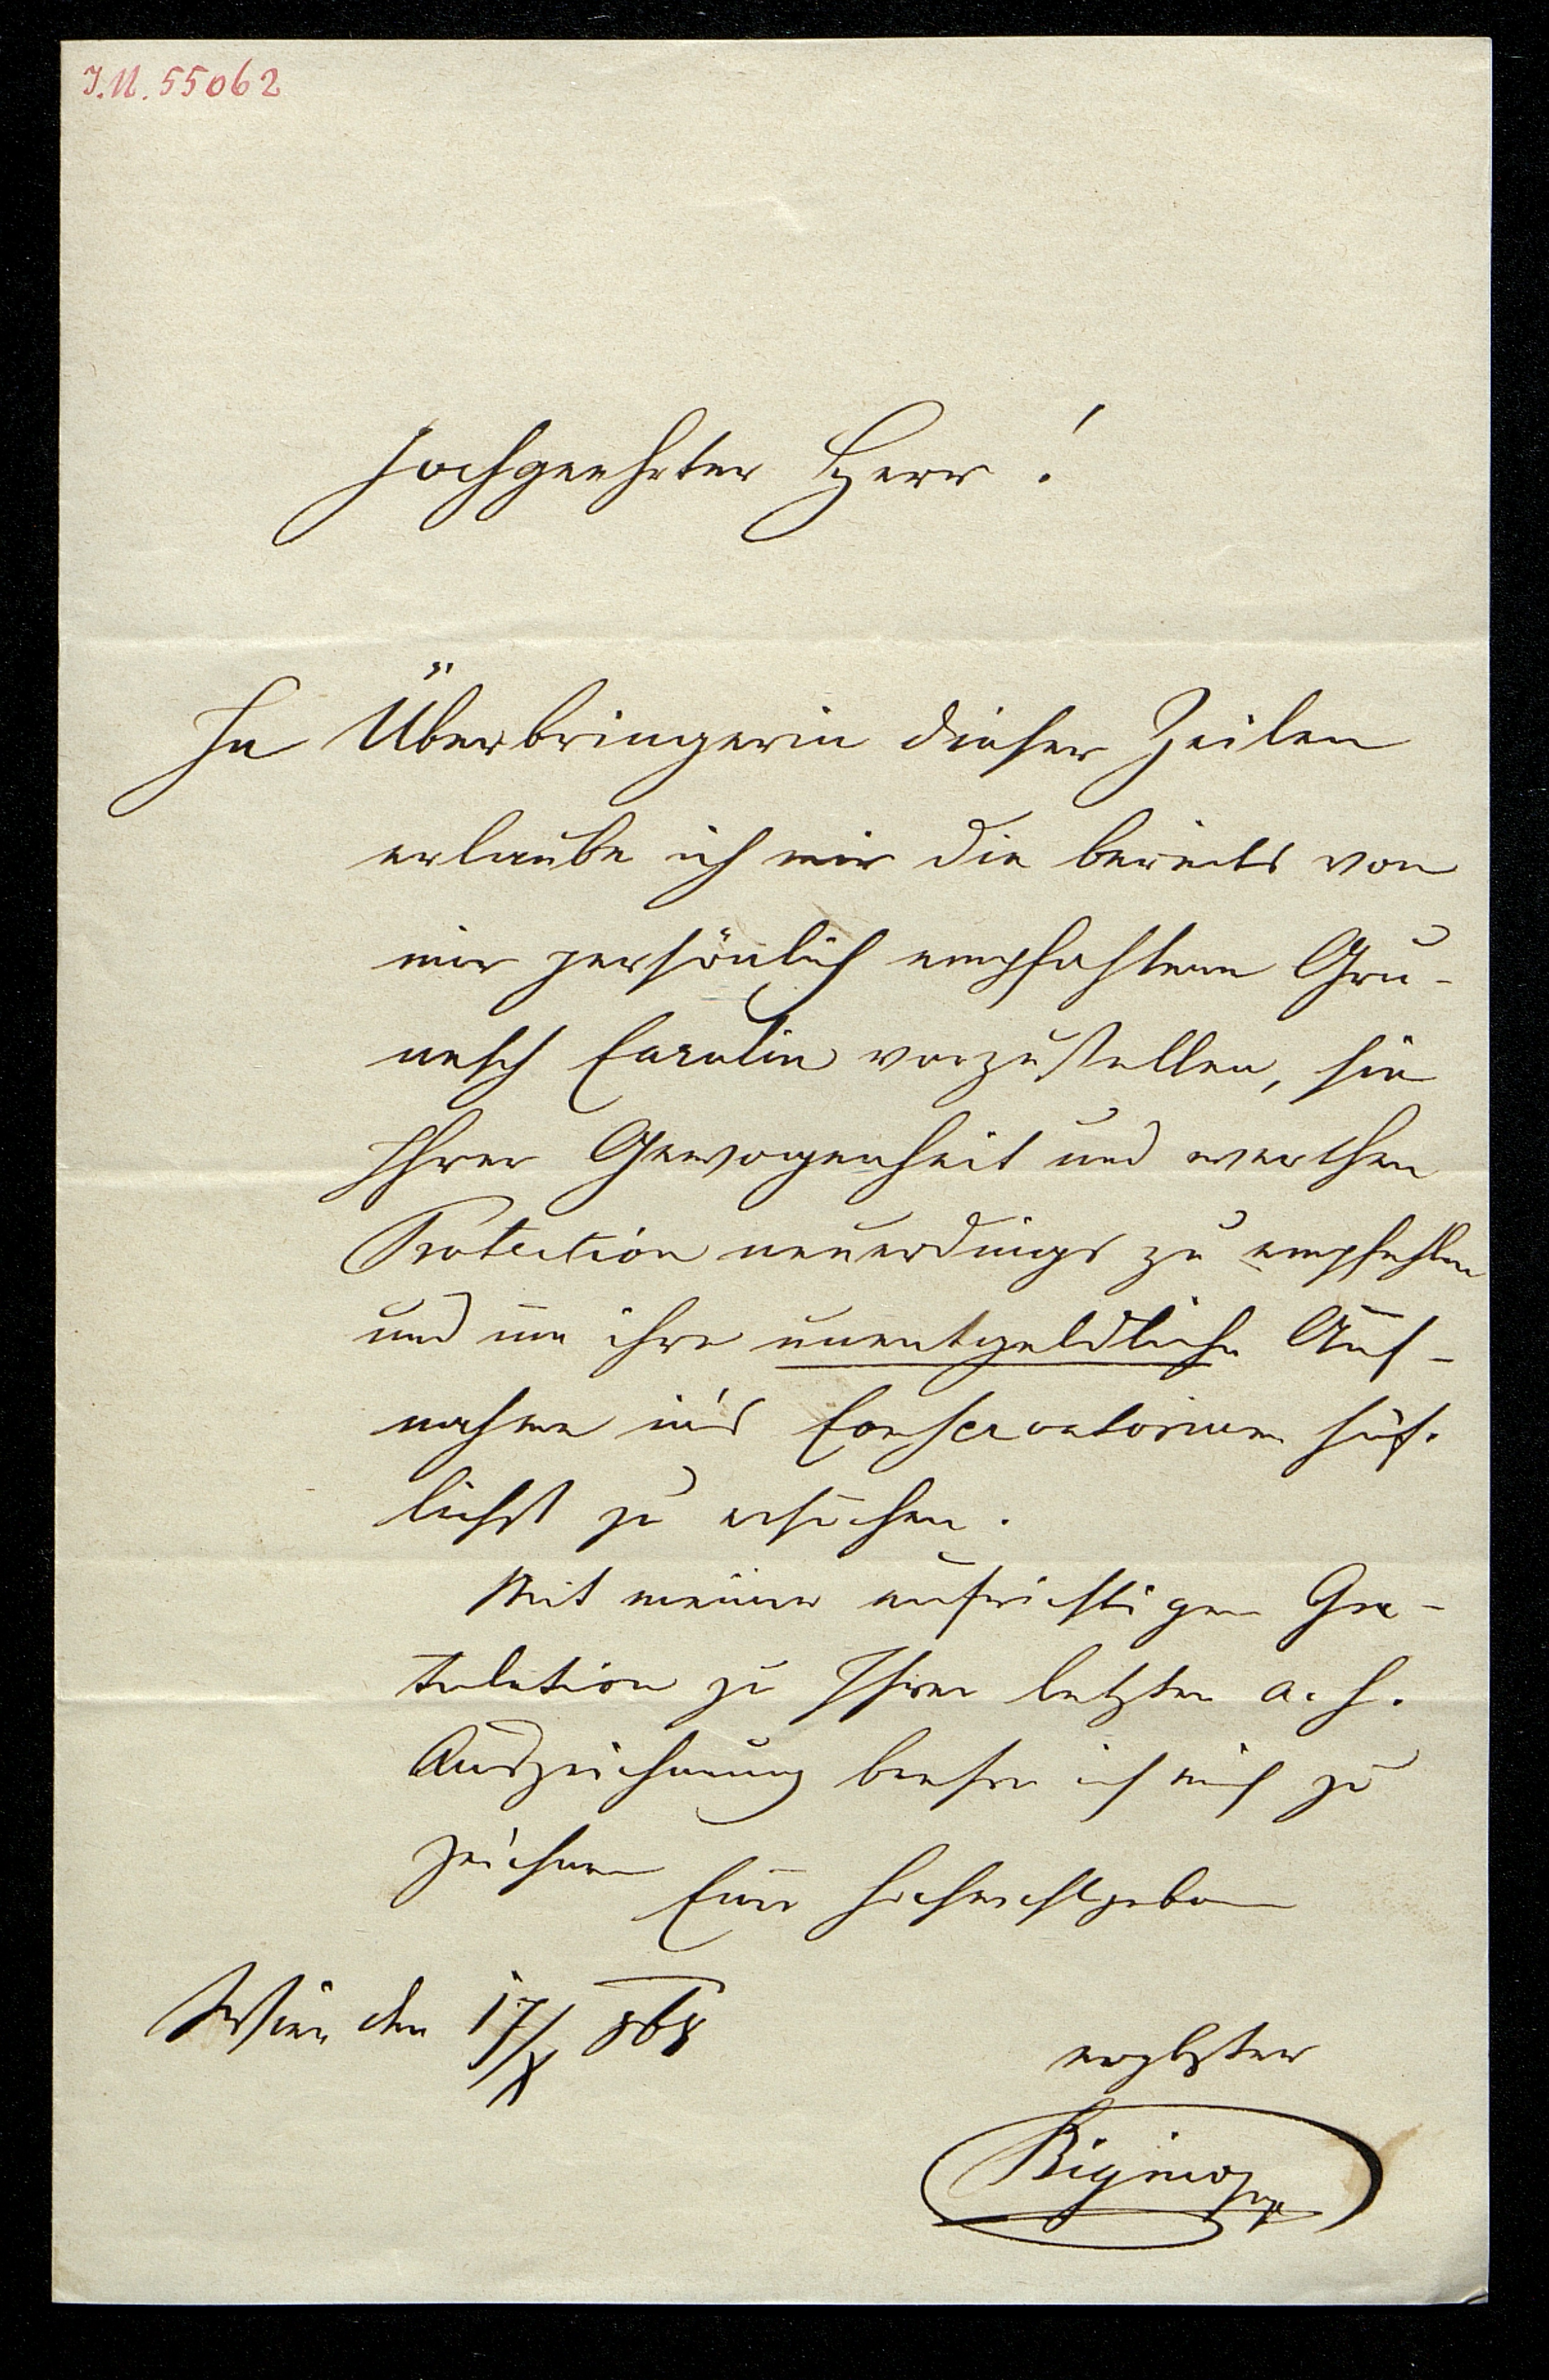 J.N. 55062
Hochgeehrter Herr!
In Überbringerin dieser Zeilen
erlaube ich mir die bereits von
mir persönlich empfohlene Gru-
nesch Carolin vorzustellen, sie
Ihrer Gewogenheit und werthen
Protection neuerdings zu empfehlen
und um ihre unentgeldliche Auf-
nahme in's Conservatorium höf-
lichst zu ersuchen.
Mit meiner aufrichtigen Gra-
tulation zu Ihrer letzten a. h.
Auszeichnung beehre ich mich zu
zeichnen
Euer Hochwohlgeboren
Wien den 17/X 868
ergbster